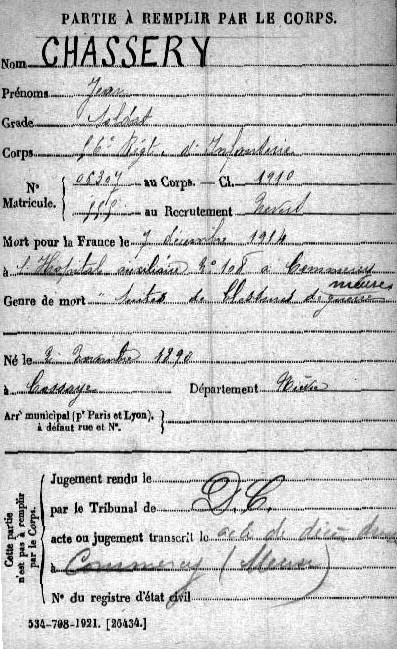 PARTIE À REMPLIR PAR LE CORPS.
Nom CHASSERY
Prénoms Jean
Grade Soldat
Corps 56e Régt. d'Infanterie
Nº 06307 au Corps. — Cl. 1910
Matricule. au Recrutement Nevers
Mort pour la France le 7 décembre 1914
à l'Hôpital auxiliaire Nº 108 à Commercy
Meuse
Genre de mort Suites de blessures de guerre
Né le 1890
à Cossaye Département Nièvre
Arrt municipal (pr Paris et Lyon),
à défaut rue et Nº.
Cette partie
n'est pas à remplir
par le Corps.
Jugement rendu le
par le Tribunal de D.C.
acte ou jugement transcrit le acte de décès dans
à Commercy (Meuse)
Nº du registre d'état civil
534-708-1921. [26434.]